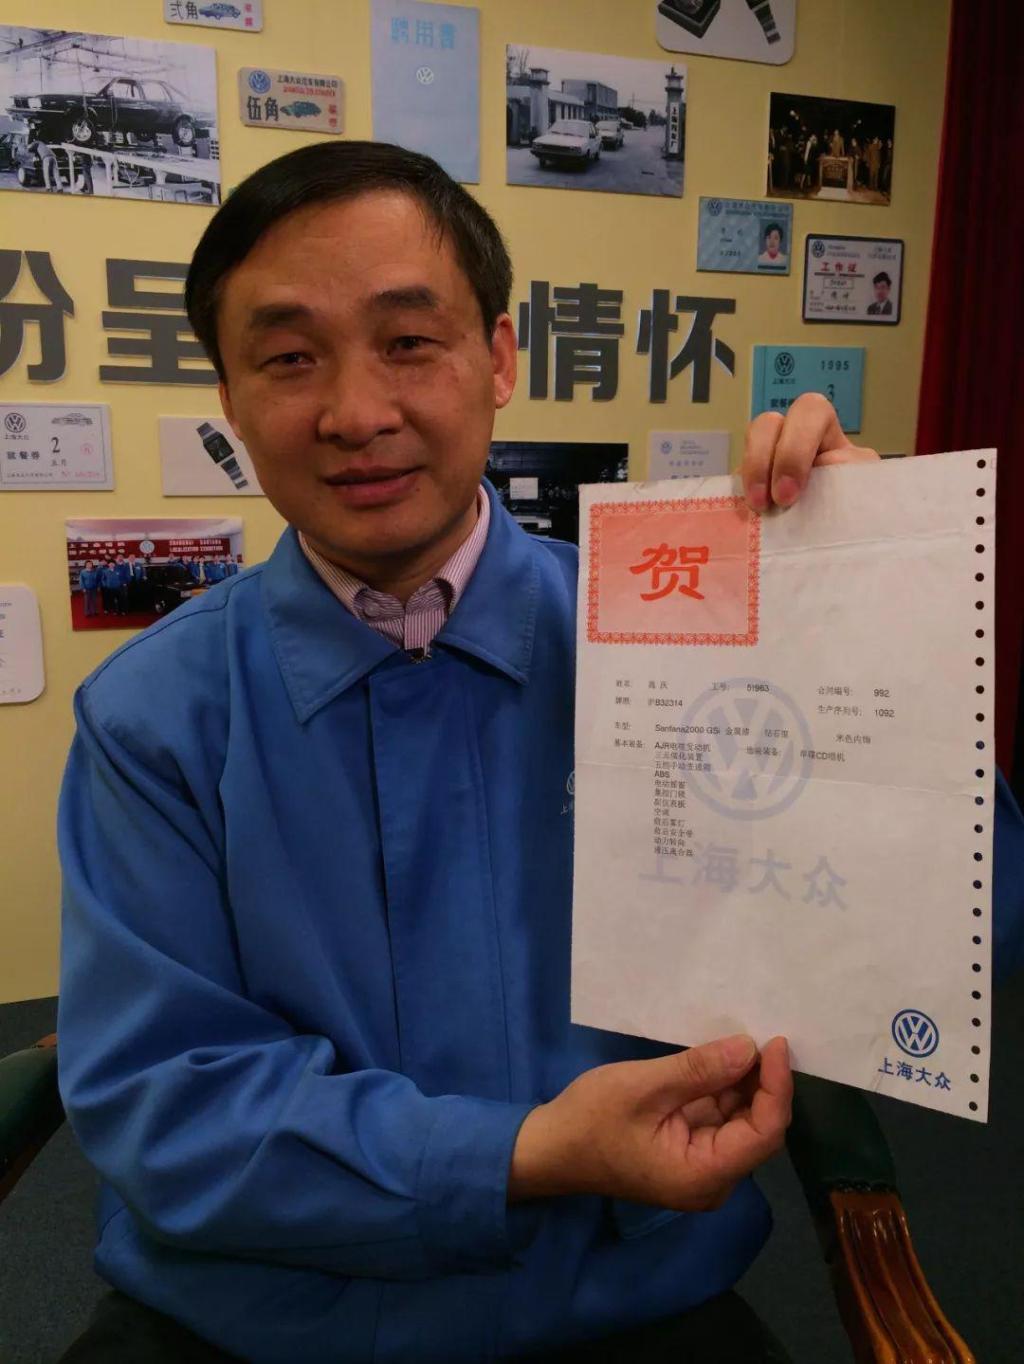 弍角
上海大众汽车有限公司
伍角
聘用書
上海汽车厂
工作证
份呈
情怀
1995
上海大众
3
就餐券
上海大众
就餐券
2
五月
SHANGHAI SANTANA
LOCALIZATION EXHIBITION
贺
姓名: 高庆 工号: 51963 合同编号: 992
牌照: 沪B32314 生产序列号: 1092
车型: Santana2000 GSi 金属漆 钻石银 米色内饰
基本装备: AJR电喷发动机 选装装备: 单碟CD唱机
三元催化装置
五档手动变速箱
ABS
电动摇窗
集控门锁
副仪表板
空调
前后雾灯
前后安全带
动力转向
液压离合器
上海大众
上海大众